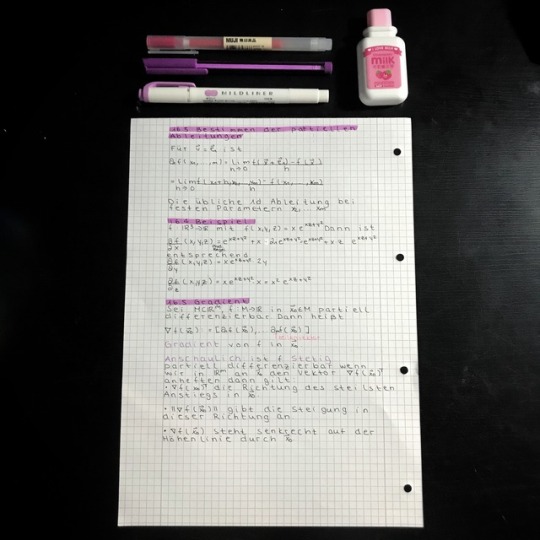 MUJI 無印良品
MILDLINER
milk
16.3 Bestimmen der partiellen
Ableitungen
Für v⃗ = e⃗₁ ist
∂₁f(x₁, ..., xₙ) = lim f(x⃗ + h e⃗₁) - f(x⃗)
h→0 h
= lim f(x₁+h, x₂, ..., xₙ) - f(x₁, ..., xₙ)
h→0 h
Die übliche 1d Ableitung bei
festen Parametern x₂, ... xₙ.
16.4 Beispiel
f: ℝ³→ℝ mit f(x,y,z) = x e^(xz+y²) Dann ist
∂f (x,y,z) = e^(xz+y²) + x · e^(xz+y²)
∂x
entsprechend
∂f (x,y,z) = x e^(xz+y²) · 2y
∂y
∂f (x,y,z) = x e^(xz+y²) · x = x² e^(xz+y²)
∂z
16.5 Gradient
Sei M⊂ℝⁿ, f: M→ℝ in x⃗₀∈M partiell
differenzierbar. Dann heißt
∇f(x⃗₀) := [∂₁f(x⃗₀), ... ∂ₙf(x⃗₀)]
Gradient von f in x⃗₀
Anschaulich ist f stetig
partiell differenzierbar wenn
wir in ℝⁿ an x⃗₀ den Vektor ∇f(x⃗₀)ᵀ
anheften dann gilt
• ∇f(x⃗₀)ᵀ die Richtung des steilsten
Anstiegs in x⃗₀.
• ‖∇f(x⃗₀)‖ gibt die Steigung in
dieser Richtung an
• ∇f(x⃗₀) steht senkrecht auf der
Höhenlinie durch x⃗₀.